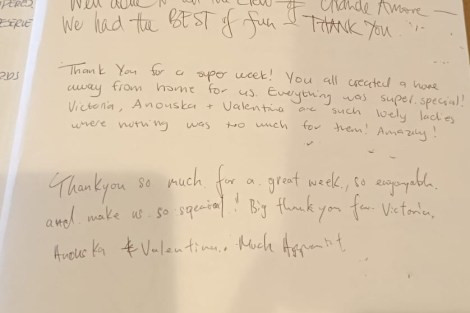 Well done to all the Crew of Grande Amore —
We had the BEST of fun – THANK YOU
Thank You for a super week! You all created a home
away from home for us. Everything was super special!
Victoria, Anouska + Valentina are such lovely ladies
where nothing was too much for them! Amazing!
Thankyou so much for a great week, so enjoyable.
and make us so special! Big thank you for Victoria,
Anouska & Valentina. Much